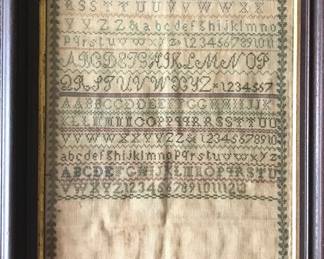 R S S T T U U V V W W X X
Y Y Z Z & a b c d e f g h i j k l m n o
p q r s t u v w x y z 1 2 3 4 5 6 7 8 9 10 11
A B C D E F G H I K L M N O P
Q R S T U V W Y Z 1 2 3 4 5 6 7
A A B B C C D D E E F F G G H H I I J J K
O O P P Q Q R R S S T T U U
V V W W X X Y Y Z Z & 1 2 3 4 5 6 7 8 9 10
a b c d e f g h i j k l m n o p q r s t u v w x y z
A B C D E F G H I J K L M N O P Q R S T U
V W X Y Z 1 2 3 4 5 6 7 8 9 10 11 12